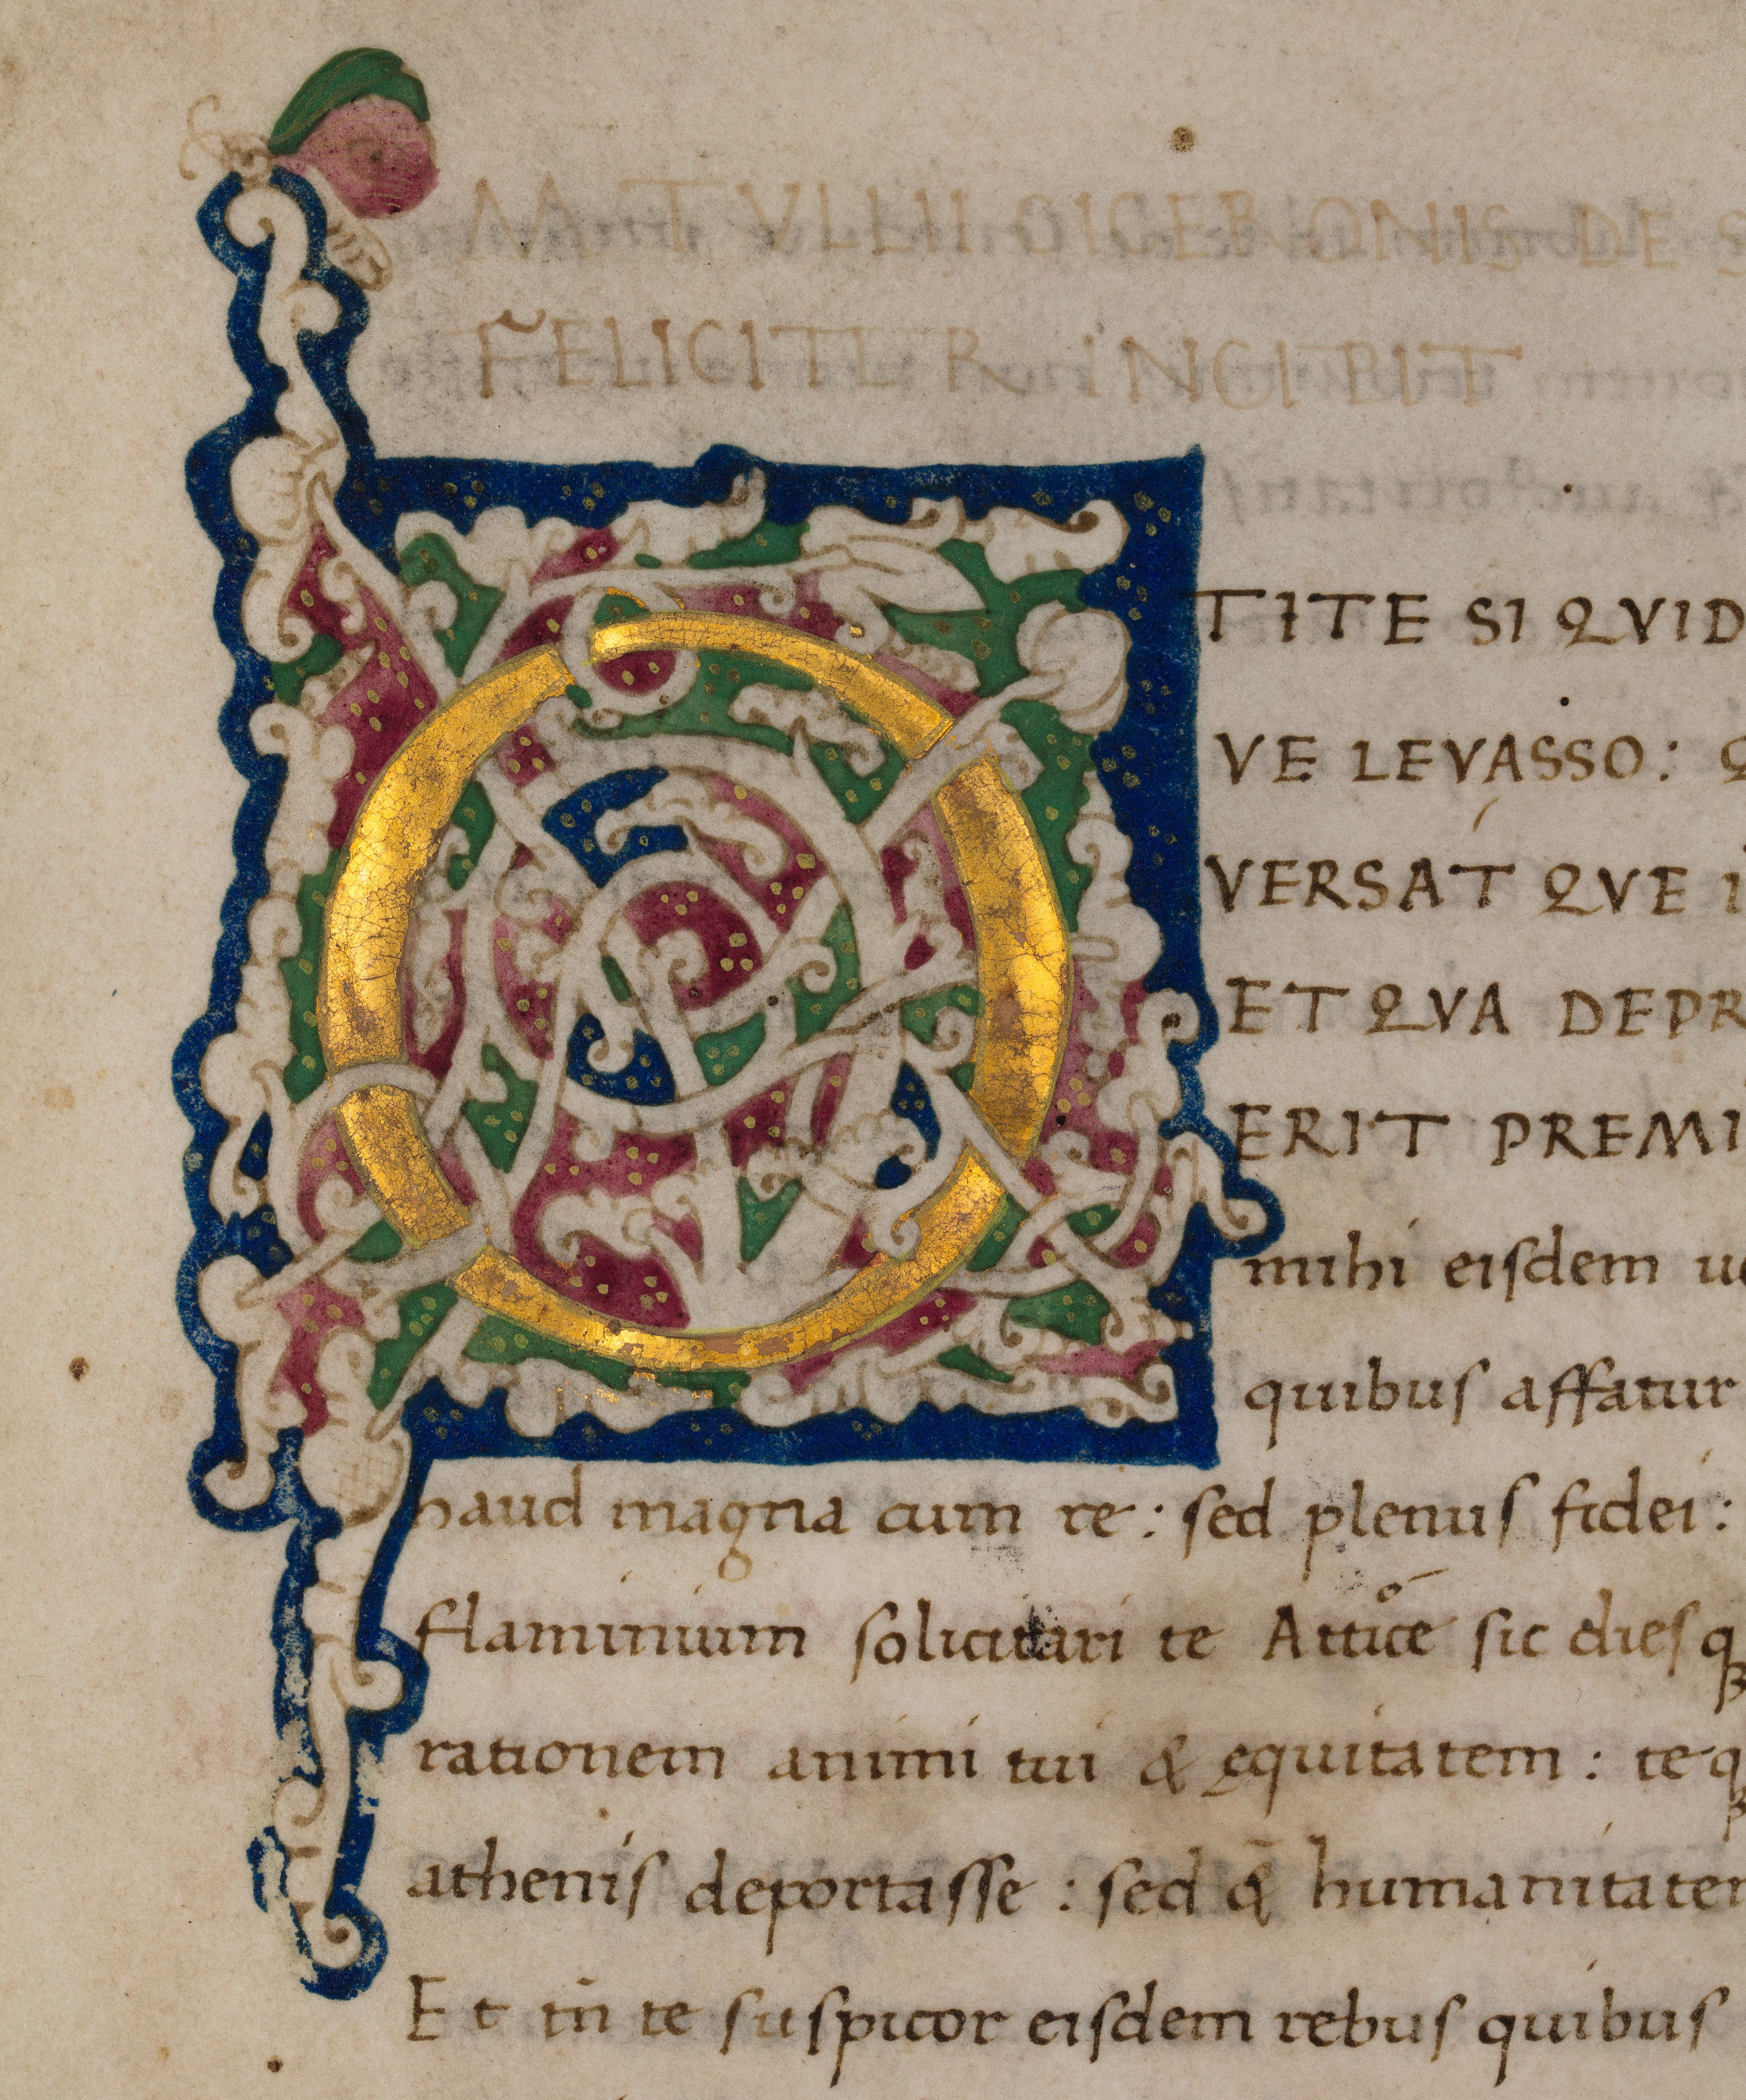 M TVLLII CICERONIS DE S
FELICITER INCIPIT
O TITE SI QVID
VE LEVASSO: Q
VERSAT QVE I
ET QVA DEPR
ERIT PREMI
mihi eiſdem ue
quibuſ affatur
haud magna cum re: sed plenuſ fidei:
flaminium ſolicitari te Atticē sic dieſq
rationem animi tui & ęquitatem: te q
atheniſ deportaſſe: ſed & humanitatem
Et tn̄ te suſpicor eiſdem rebuſ quibuſ